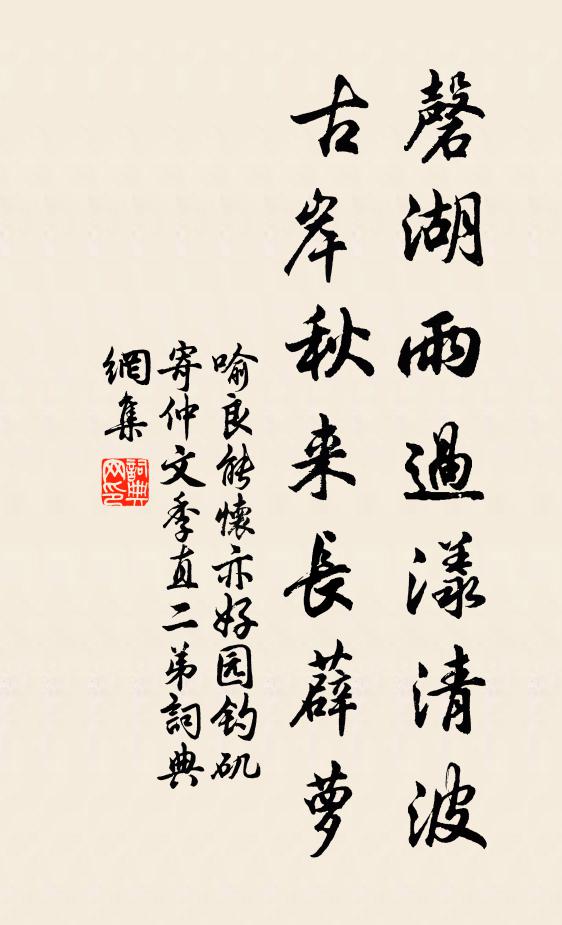 磬湖雨過漾清波
古岸秋来長薜萝
喻良能懷亦好园钓矶
寄仲文季直二弟詞典
網集
詞典网印